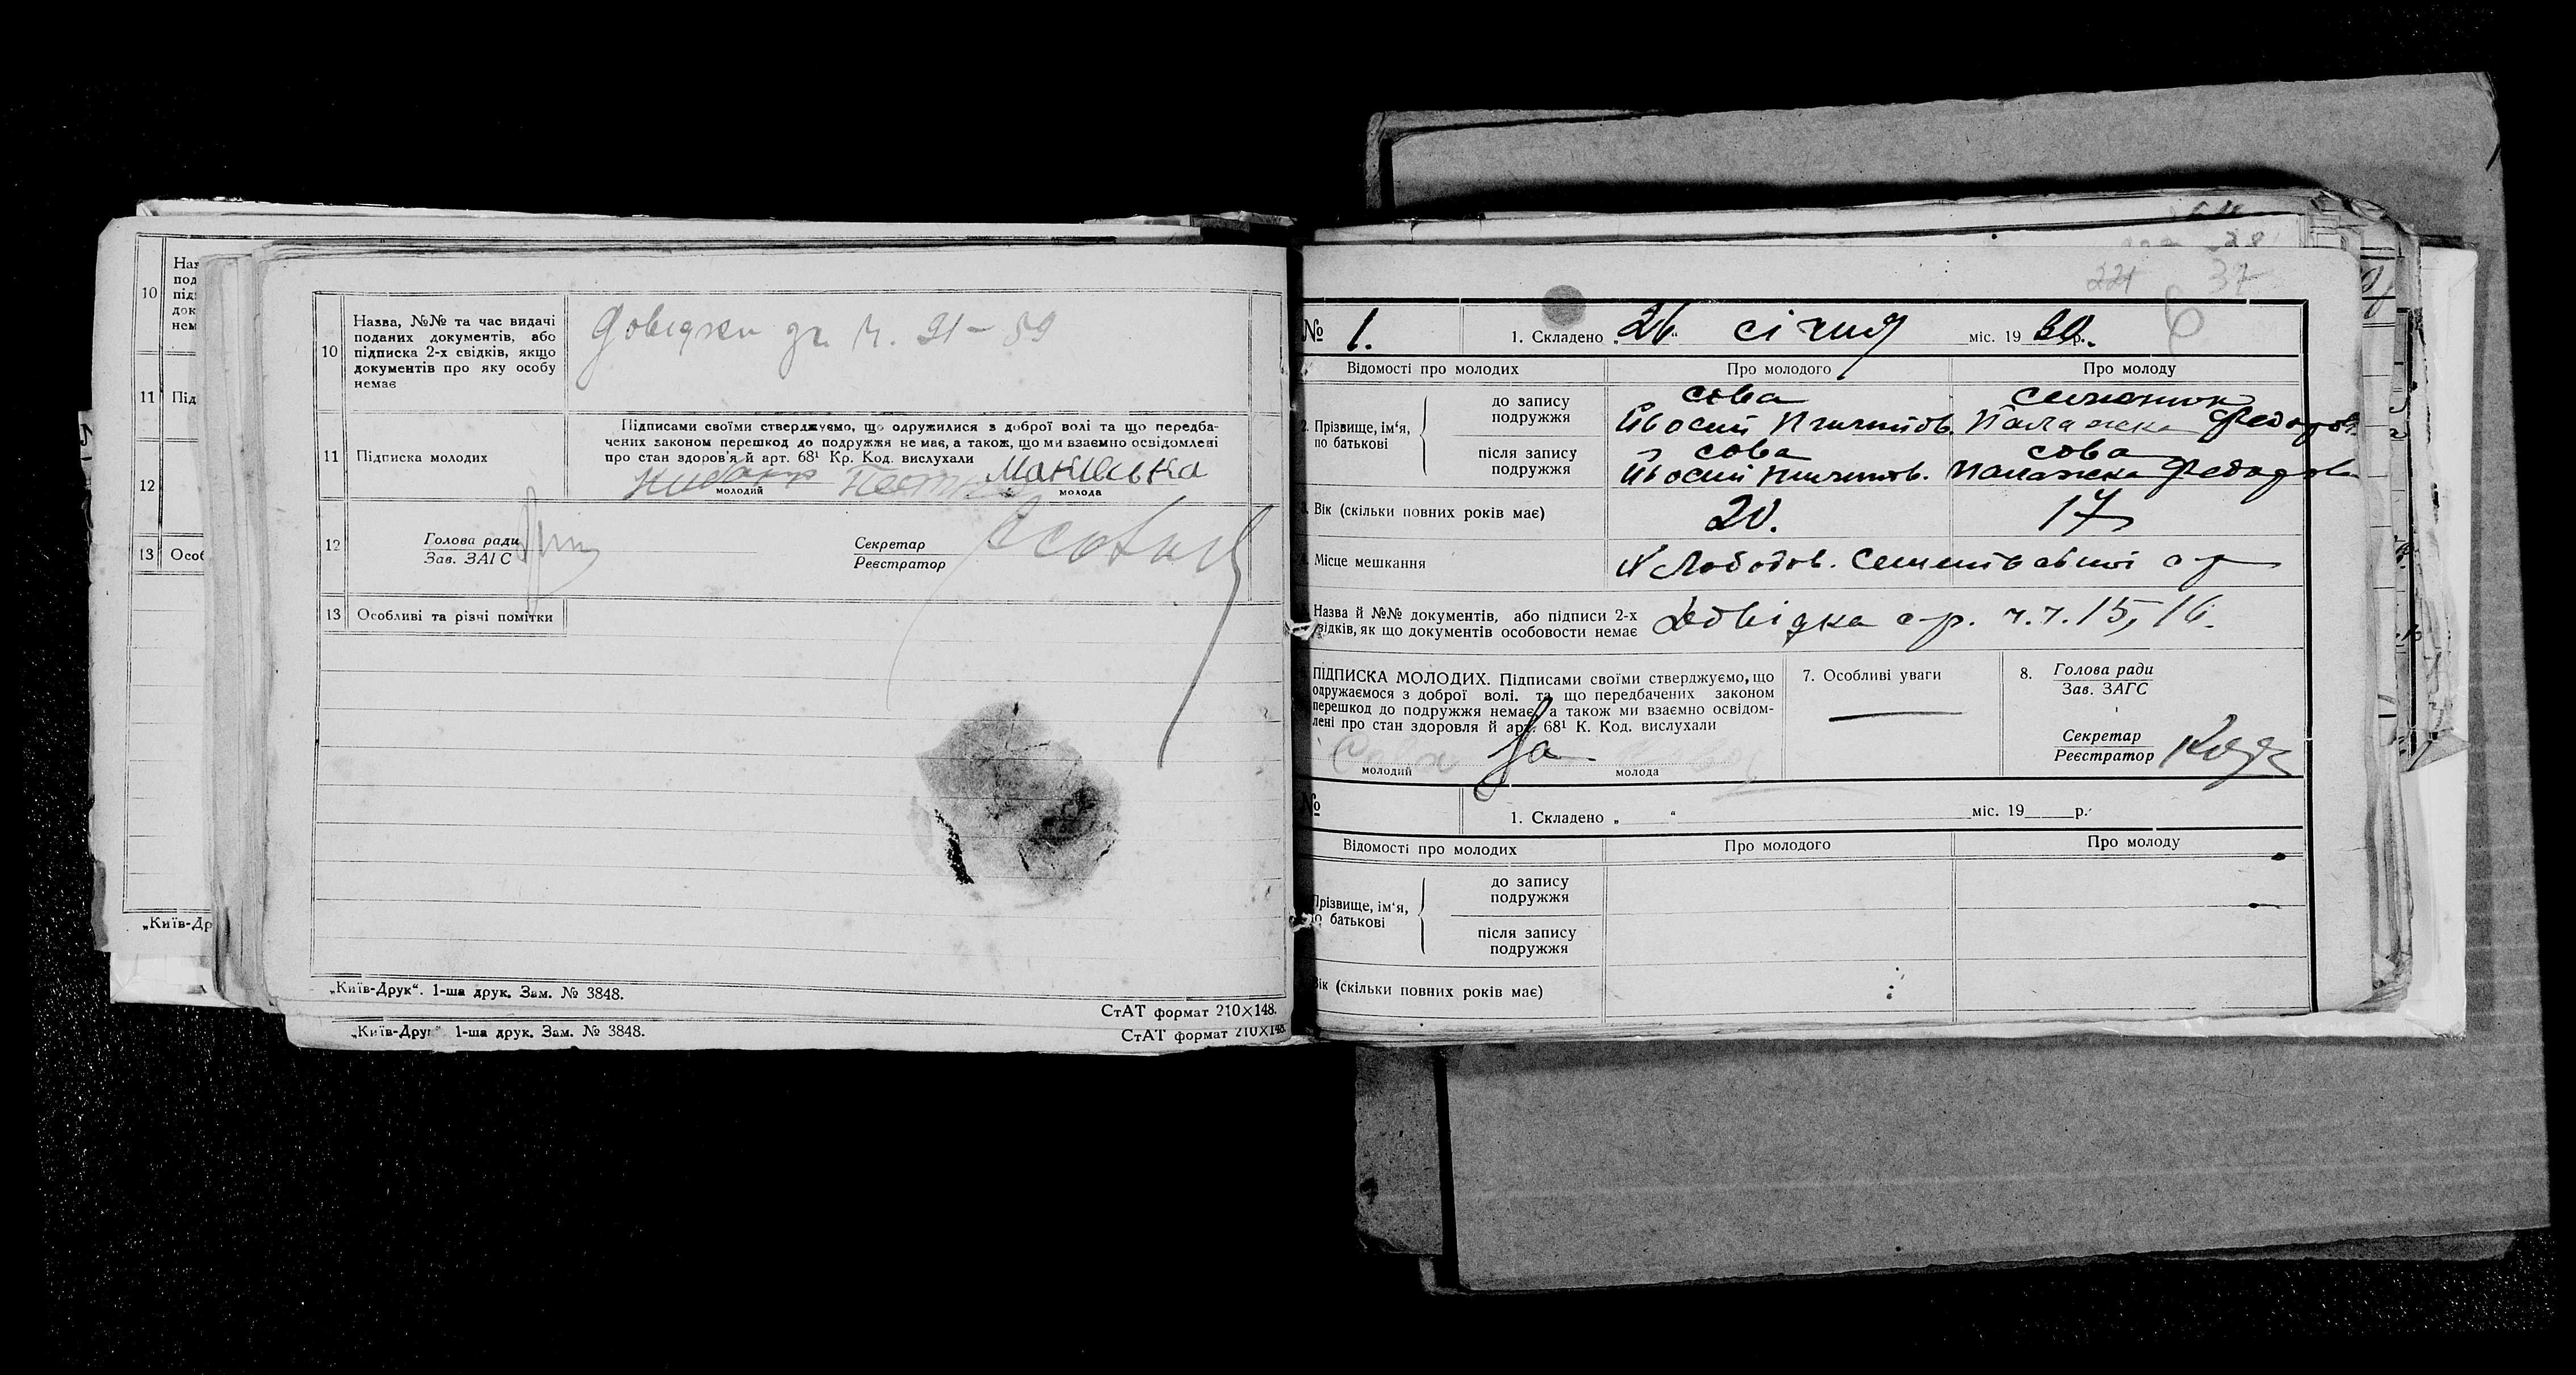 10
Наз
под
підп
док
нем
11 Під
12
13 Особ
„Київ-Др
10
Назва, №№ та час видачі
поданих документів, або
підписка 2-х свідків, якщо
документів про яку особу
немає
Довідки
11
Підписка молодих
Підписами своїми стверджуємо, що одружилися з доброї волі та що передба-
чених законом перешкод до подружжя не має, а також, що ми взаємно освідомлені
про стан здоров'я й арт. 68¹ Кр. Код. вислухали
молодий
молода
12
Голова ради
Зав. ЗАГС
Секретар
Реєстратор
13
Особливі та різні помітки
„Київ-Друк“. 1-ша друк. Зам. № 3848.
СтАТ формат 210×148.
„Київ-Друк“ 1-ша друк. Зам. № 3848.
СтАТ формат 210×148.
37
6
№ 1.
1. Складено „26“ січня міс. 1930 р.
Відомості про молодих
Про молодого
Про молоду
2. Прізвище, ім‘я,
по батькові
до запису
подружжя
Сова
Палажка Федоров.
після запису
подружжя
Сова
Сова
Палажка Федорова
3. Вік (скільки повних років має)
20.
17
4. Місце мешкання
Назва й №№ документів, або підписи 2-х
свідків, як що документів особовости немає
Довідка с-р. ч.ч. 15, 16.
ПІДПИСКА МОЛОДИХ. Підписами своїми стверджуємо, що
одружаємося з доброї волі. та що передбачених законом
перешкод до подружжя немає, а також ми взаємно освідом-
лені про стан здоровля й арт. 68¹ К. Код. вислухали
молодий
молода
7. Особливі уваги
8.
Голова ради
Зав. ЗАГС
Секретар
Реєстратор
№
1. Складено „ “ міс. 19 р.
Відомості про молодих
Про молодого
Про молоду
Прізвище, ім‘я,
по батькові
до запису
подружжя
після запису
подружжя
Вік (скільки повних років має)